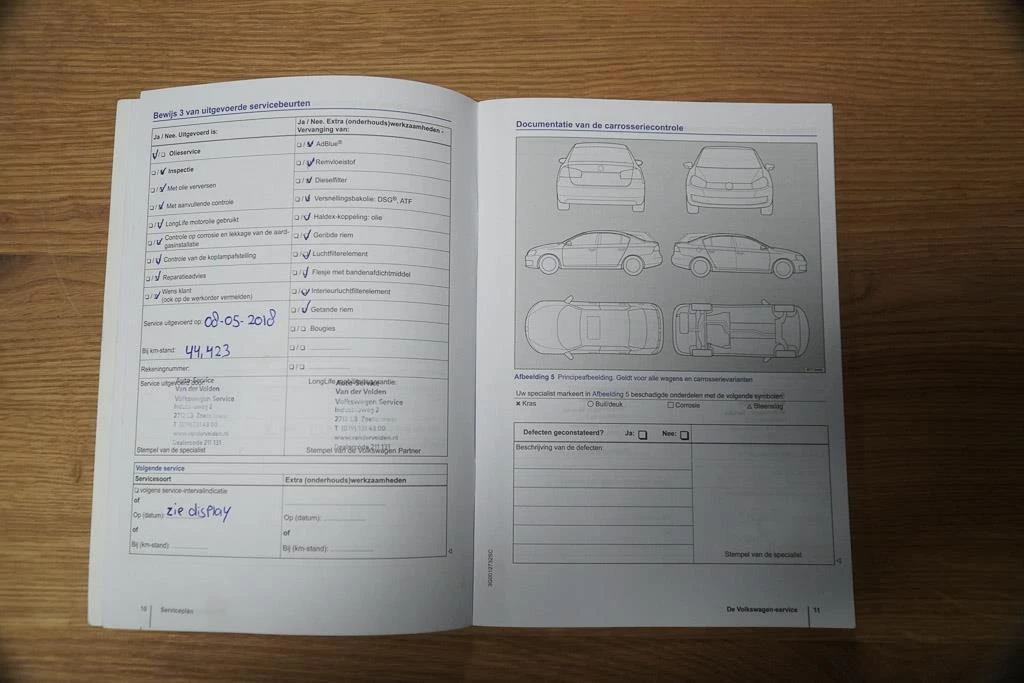 Bewijs 3 van uitgevoerde servicebeurten
Ja / Nee. Uitgevoerd is:
Ja / Nee. Extra (onderhouds)werkzaamheden -
Vervanging van:
Olieservice
Inspectie
Met olie verversen
Met aanvullende controle
LongLife motorolie gebruikt
Controle op corrosie en lekkage van de aard-
gasinstallatie
Controle van de koplampafstelling
Reparatieadvies
Wens klant
(ook op de werkorder vermelden)
AdBlue®
Remvloeistof
Dieselfilter
Versnellingsbakolie: DSG®, ATF
Haldex-koppeling: olie
Geribde riem
Luchtfilterelement
Flesje met bandenafdichtmiddel
Interieurluchtfilterelement
Getande riem
Bougies
Service uitgevoerd op: 08-05-2018
Bij km-stand: 44,423
Rekeningnummer:
Service uitgevoerd door:
Auto-Service
Van der Velden
Volkswagen Service
Industrieweg 2
T (079) 731 43 00
www.vandervelden.nl
Dealercode 211 131
Stempel van de specialist
Auto-Service
Van der Velden
Volkswagen Service
Industrieweg 2
T (079) 731 43 00
www.vandervelden.nl
Dealercode 211 131
Stempel van de Volkswagen Partner
Volgende service
Servicesoort
Extra (onderhouds)werkzaamheden
volgens service-intervalindicatie
of
Op (datum): zie display
of
Bij (km-stand):
Op (datum):
of
Bij (km-stand):
10 Serviceplan
Documentatie van de carrosseriecontrole
Afbeelding 5 Principeafbeelding. Geldt voor alle wagens en carrosserievarianten
Uw specialist markeert in Afbeelding 5 beschadigde onderdelen met de volgende symbolen:
Kras
Buil/deuk
Corrosie
Steenslag
Defecten geconstateerd? Ja: Nee:
Beschrijving van de defecten:
Stempel van de specialist
De Volkswagen-service 11